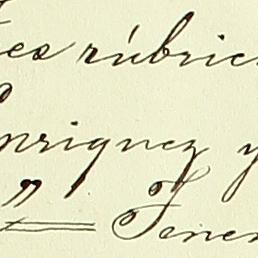 es rúbric
nriquez y
„ Tene